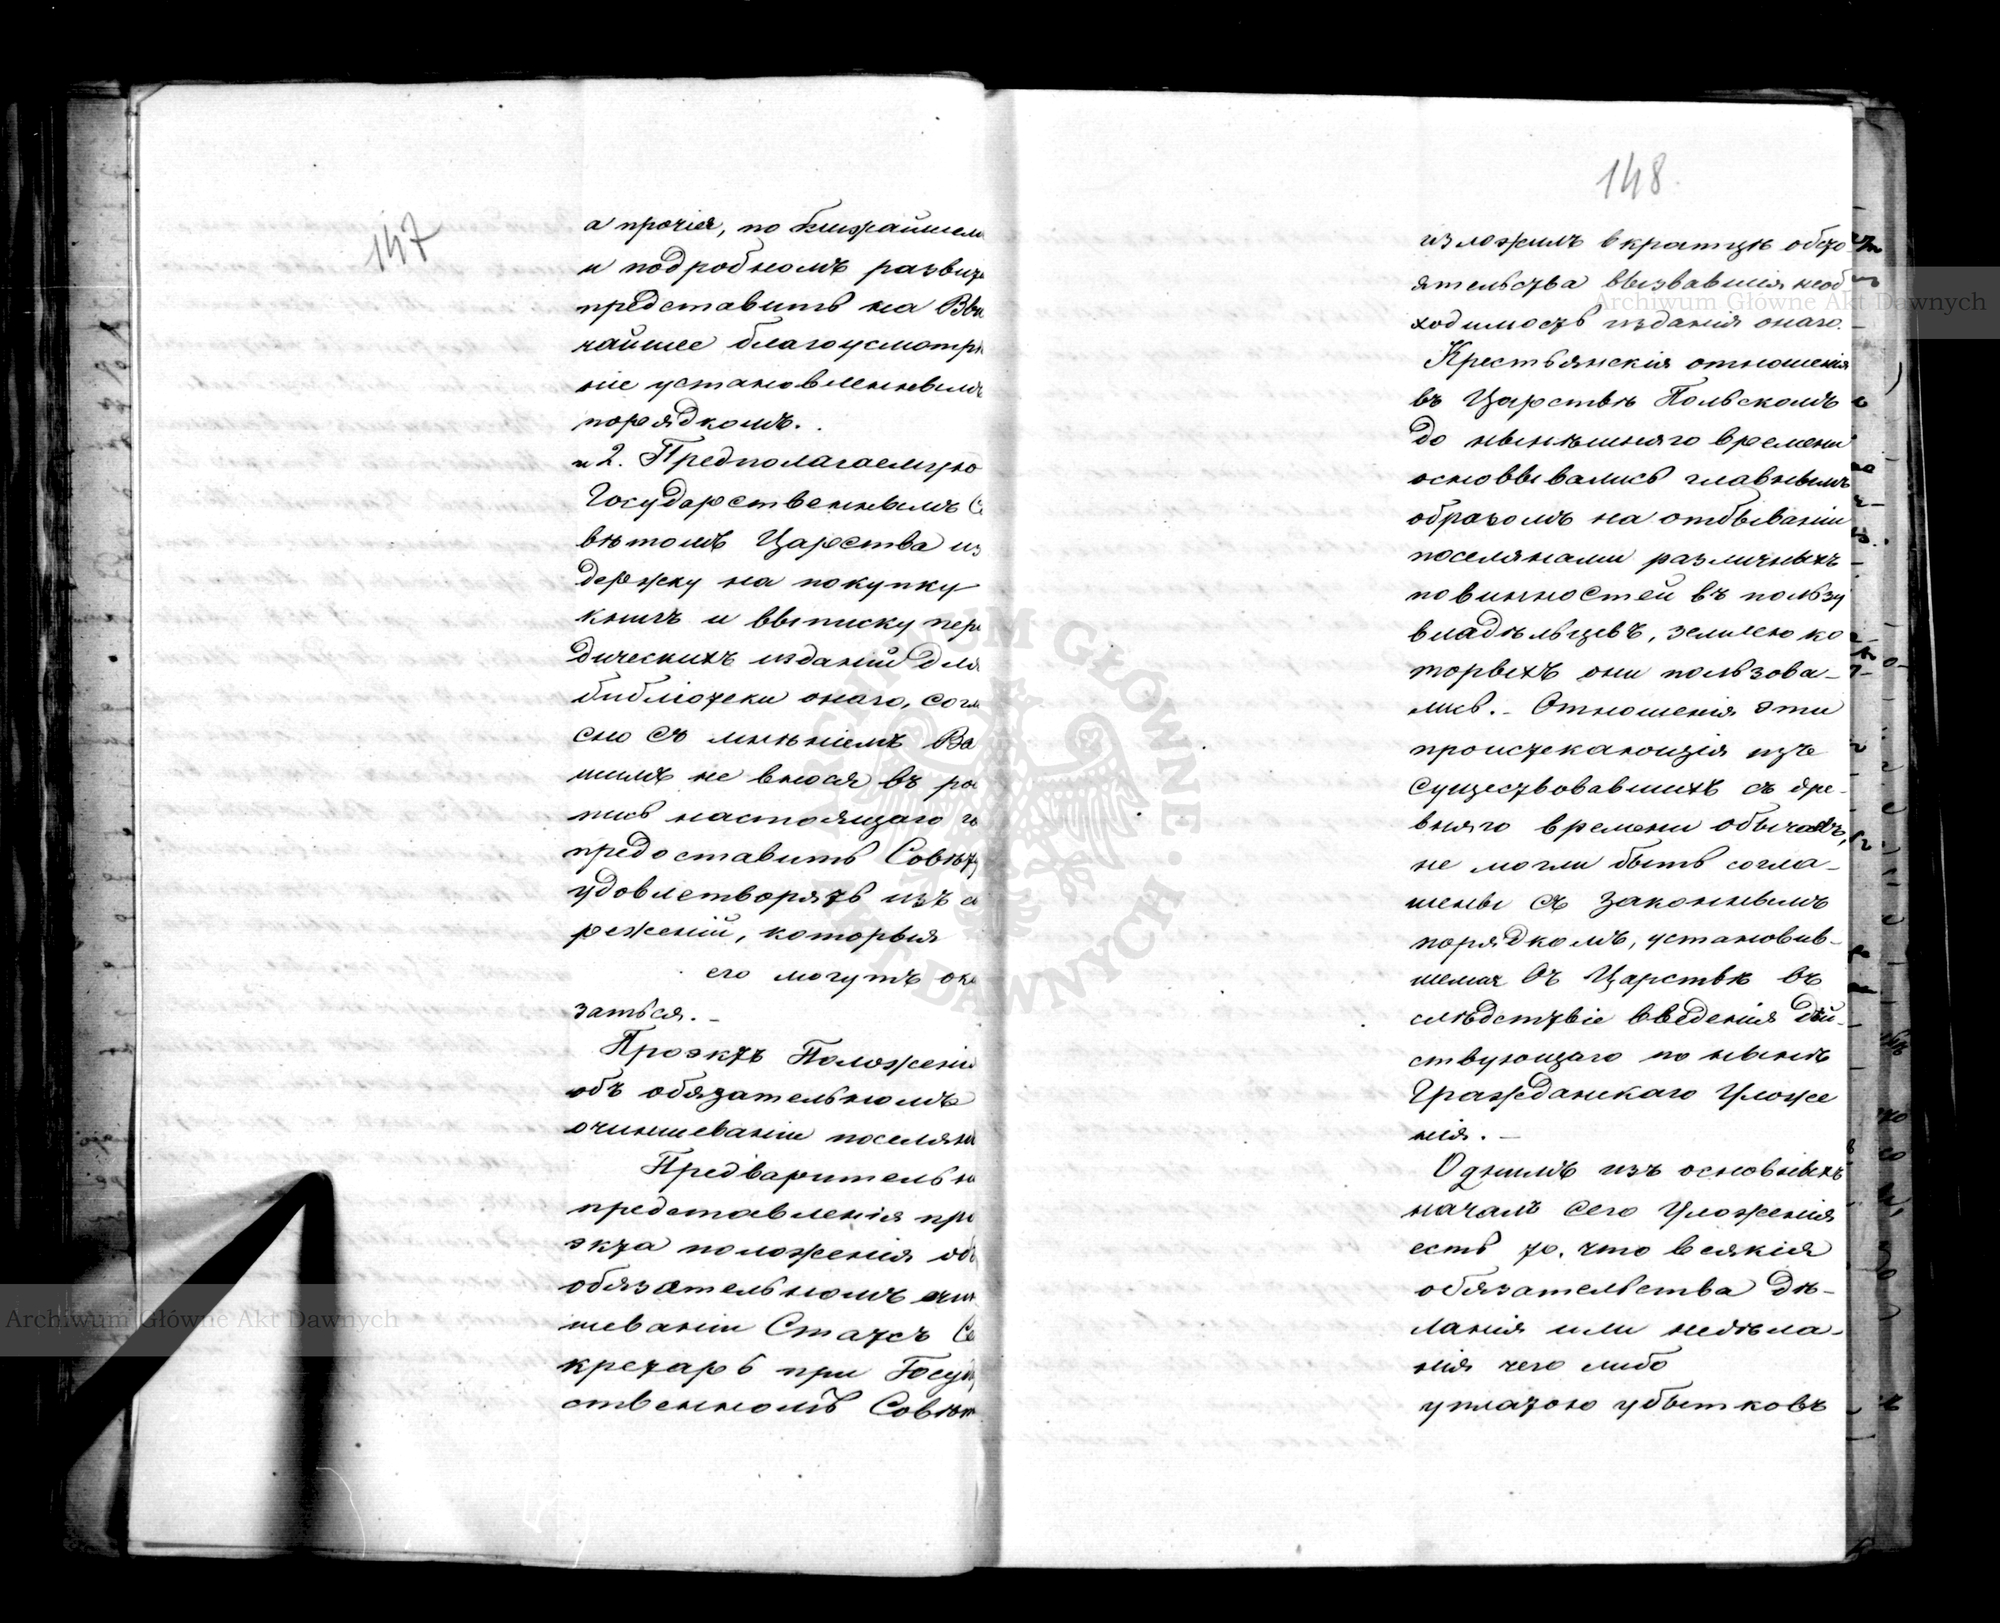 147
а прочія, по ближайшем
и подробномъ развит
представить на Выс
чайшее благоусмотрѣ
ніе установленнымъ
порядкомъ.
и 2. Предполагаемую
Государственнымъ С
вѣтомъ Царства из
держку на покупку
книгъ и выписку пері
дическихъ изданій для
библіотеки онаго, согла
сно съ мнѣніемъ Ва
шимъ не внося въ ро
пись настоящаго го
предоставить Совѣту
удовлетворять изъ с
реженій, которыя
его могутъ ока
заться. –
Проэктъ Положені
объ обязательномъ
очиншеваніи поселян
Предварительн
представленія про
экта положенія объ
обязательномъ очин
шеваніи Статсъ Се
кретарь при Госуд
ственномъ Совѣт
148
изложилъ вкратцѣ обсто
ятельства вызвавшія необ
ходимость изданія онаго. –
Крестьянскія отношенія
въ Царствѣ Польскомъ
до нынѣшняго времени
основывались главнымъ
образомъ на отбываніи
поселянами различныхъ
повинностей въ пользу
владѣльцевъ, землею ко
торыхъ они пользова–
лись. – Отношенія эти
проистекающія изъ
существовавшихъ съ дре–
вняго времени обычаевъ,
не могли быть согла–
шены съ законнымъ
порядкомъ, установив–
шемся въ Царствѣ въ
слѣдствіе введенія дѣй–
ствующаго по нынѣ
Гражданскаго Уложе
нія. –
Однимъ изъ основныхъ
началъ сего Уложенія
есть то, что всякія
обязательства дѣ–
ланія или недѣла–
нія чего либо
уплатою убытковъ
Archiwum Główne Akt Dawnych
Archiwum Główne Akt Dawnych
ARCHIWUM GŁÓWNE AKT DAWNYCH